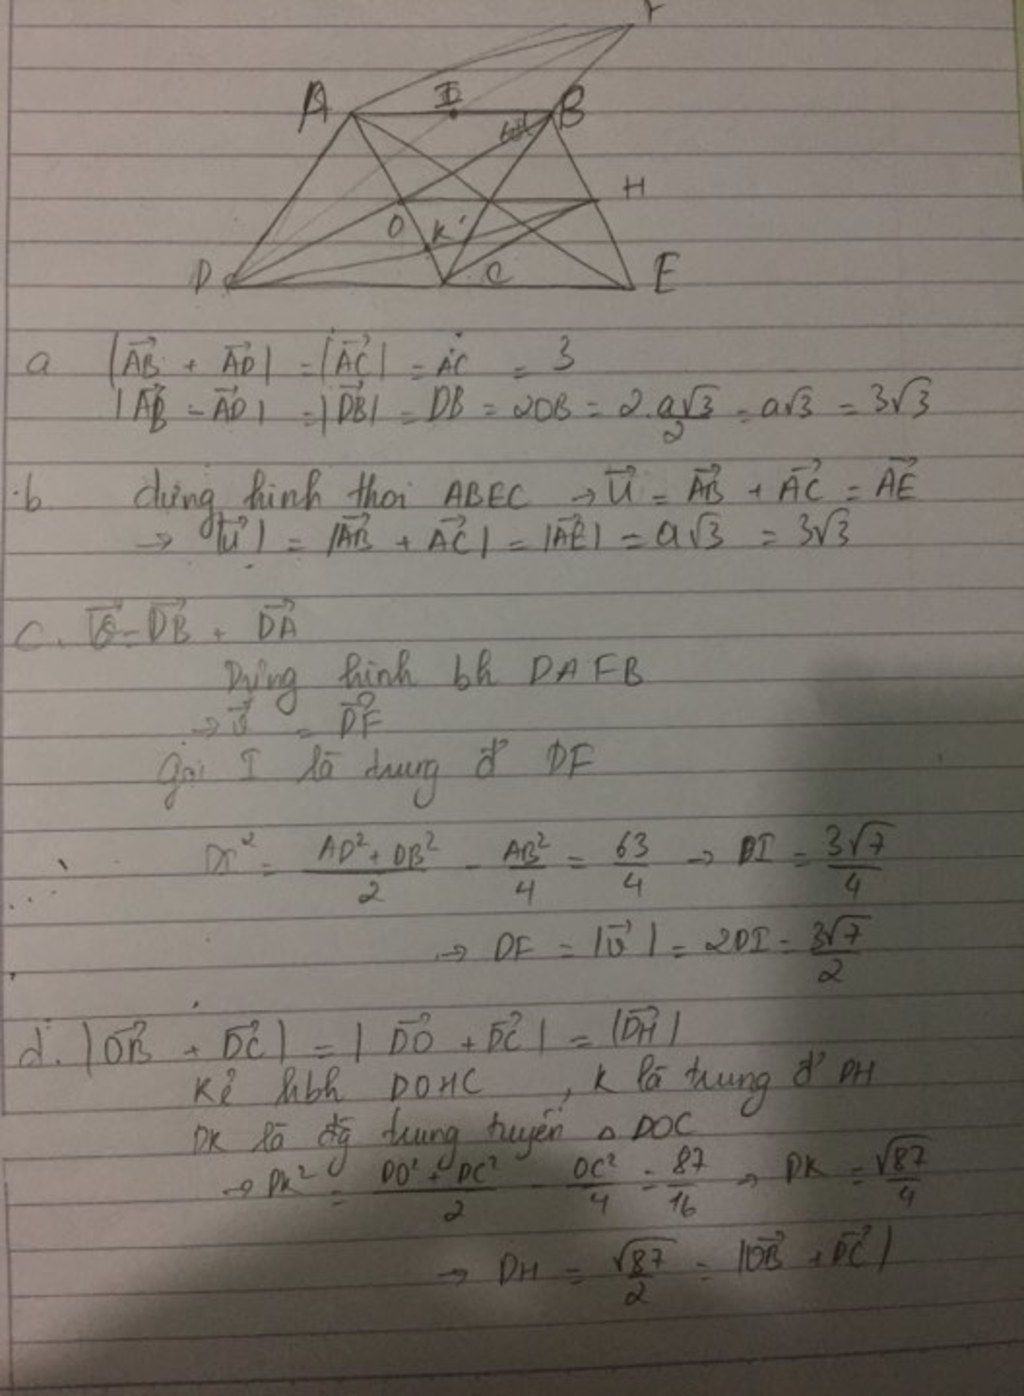 F
A I B
H
O K
D C E
a |AB⃗ + AD⃗| = |AC⃗| = AC = 3
|AB⃗ - AD⃗| = |DB⃗| = DB = 2OB = 2.a√3/2 = a√3 = 3√3
b dựng hình thoi ABEC → u⃗ = AB⃗ + AC⃗ = AE⃗
→ |u⃗| = |AB⃗ + AC⃗| = |AE⃗| = a√3 = 3√3
c. v⃗ = DB⃗ + DA⃗
Dựng hình bh DAFB
→ v⃗ = DF⃗
gọi I là trung đ' DF
DI² = (AD² + DB²)/2 - AB²/4 = 63/4 → DI = 3√7/4
→ DF = |v⃗| = 2DI = 3√7/2
d. |OB⃗ + DC⃗| = |DO⃗ + DC⃗| = |DH⃗|
Kẻ hbh DOHC , K là trung đ' DH
DK là đg trung tuyến △ DOC
→ DK² = (DO² + DC²)/2 - OC²/4 = 87/16 → DK = √87/4
→ DH = √87/2 = |OB⃗ + DC⃗|